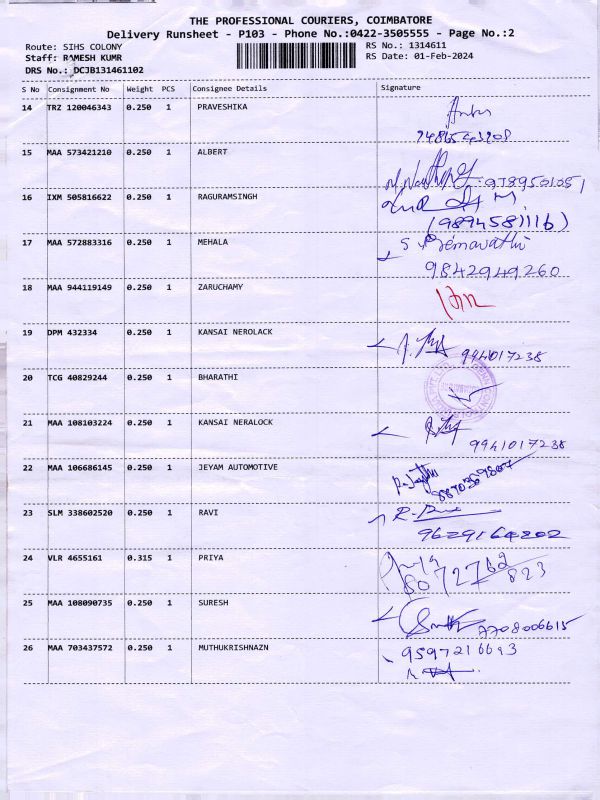 THE PROFESSIONAL COURIERS, COIMBATORE
Delivery Runsheet - P103 - Phone No.:0422-3505555 - Page No.:2
Route: SIHS COLONY RS No.: 1314611
Staff: RAMESH KUMR RS Date: 01-Feb-2024
DRS No.: DCJB131461102
S No Consignment No Weight PCS Consignee Details Signature
14 TRZ 120046343 0.250 1 PRAVESHIKA
15 MAA 573421210 0.250 1 ALBERT
9789501051
16 IXM 505816622 0.250 1 RAGURAMSINGH
(9894581116)
17 MAA 572883316 0.250 1 MEHALA S Premavathi
9842949260
18 MAA 944119149 0.250 1 ZARUCHAMY
19 DPM 432334 0.250 1 KANSAI NEROLACK
9941017238
20 TCG 40829244 0.250 1 BHARATHI
21 MAA 108103224 0.250 1 KANSAI NERALOCK
9941017238
22 MAA 106686145 0.250 1 JEYAM AUTOMOTIVE
23 SLM 338602520 0.250 1 RAVI
9629164202
24 VLR 4655161 0.315 1 PRIYA
25 MAA 108090735 0.250 1 SURESH
7708006615
26 MAA 703437572 0.250 1 MUTHUKRISHNAZN